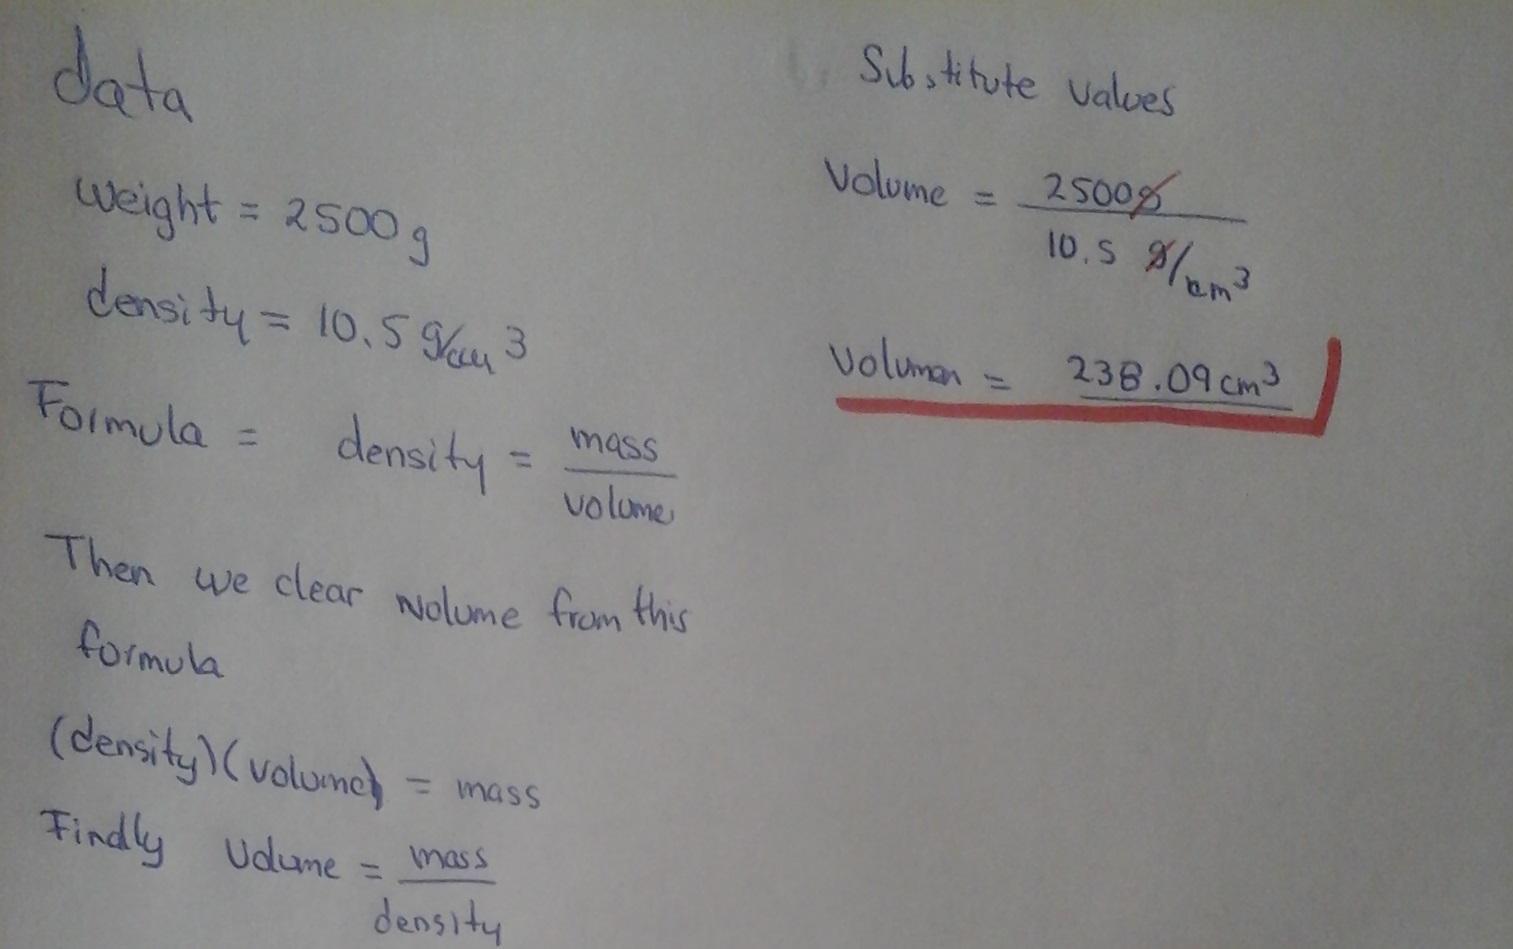 data
weight = 2500g
density = 10.5 g/cm3
Formula = density = mass
volume
Then we clear volume from this
formula
(density)(volume) = mass
Finally volume = mass
density
Substitute values
Volume = 2500g
10.5 g/cm3
Volumen = 238.09cm3